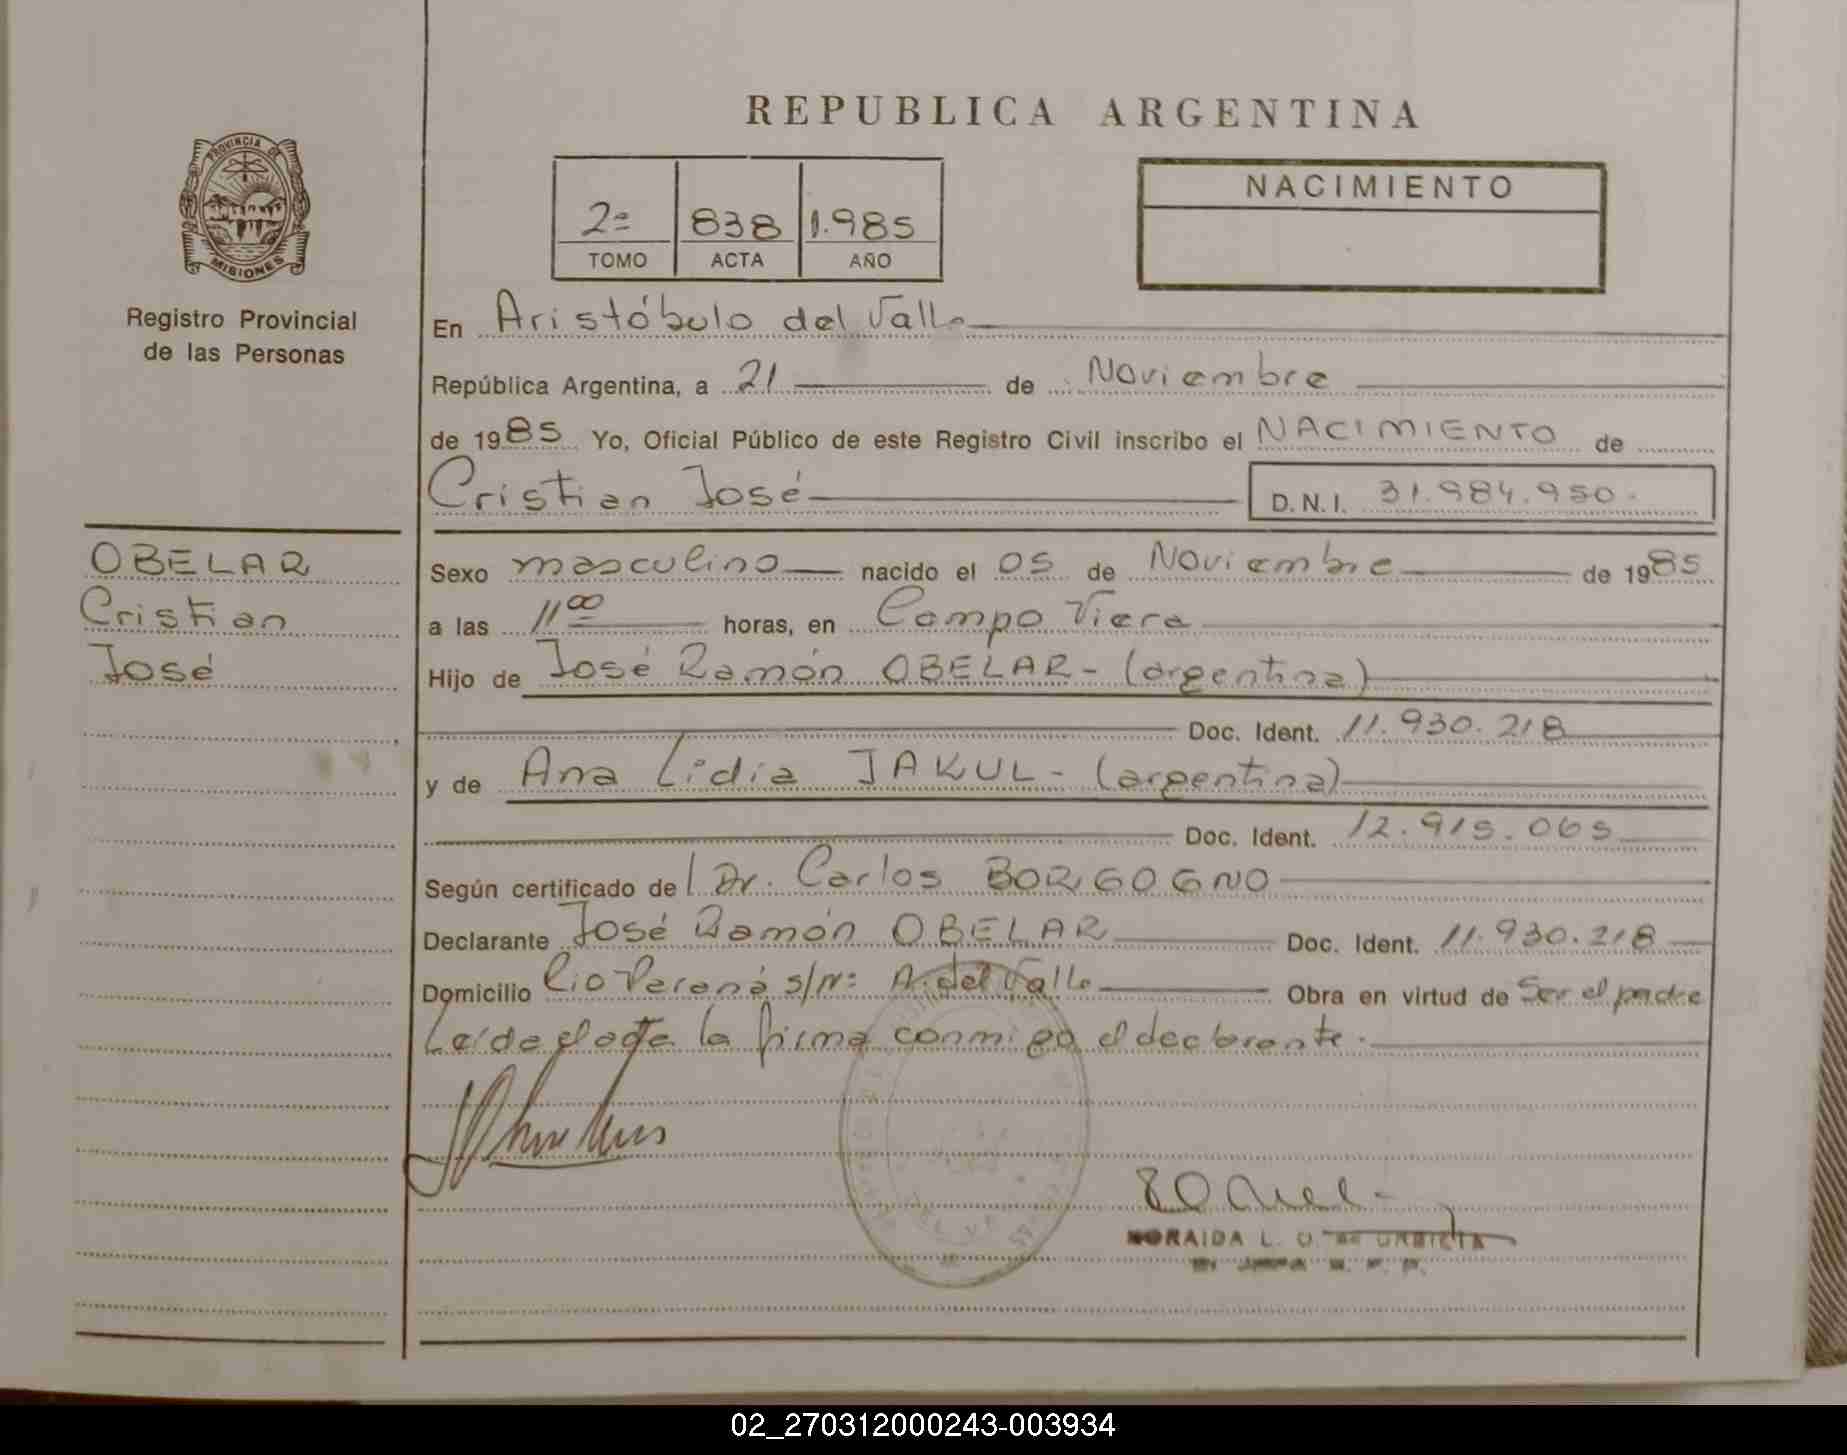 REPUBLICA ARGENTINA
PROVINCIA DE
MISIONES
Registro Provincial
de las Personas
2º 838 1.985
TOMO ACTA AÑO
NACIMIENTO
En Aristóbulo del Valle
República Argentina, a 21 de Noviembre
de 1985 Yo, Oficial Público de este Registro Civil inscribo el NACIMIENTO de
Cristian José D.N.I. 31.984.950.
OBELAR
Cristian
José
Sexo masculino nacido el 05 de Noviembre de 1985
a las 11 00 horas, en Campo Viera
Hijo de José Ramón OBELAR - (argentina)
Doc. Ident. 11.930.218
y de Ana Lidia JAKUL - (argentina)
Doc. Ident. 12.915.065
Según certificado de Dr. Carlos BORGOGNO
Declarante José Ramón OBELAR Doc. Ident. 11.930.218
Domicilio Rio Paraná s/nº A. del Valle Obra en virtud de Ser el padre
Leída el acta la firma conmigo el declarante.
NORAIDA L. O. de URBIETA
02_270312000243-003934